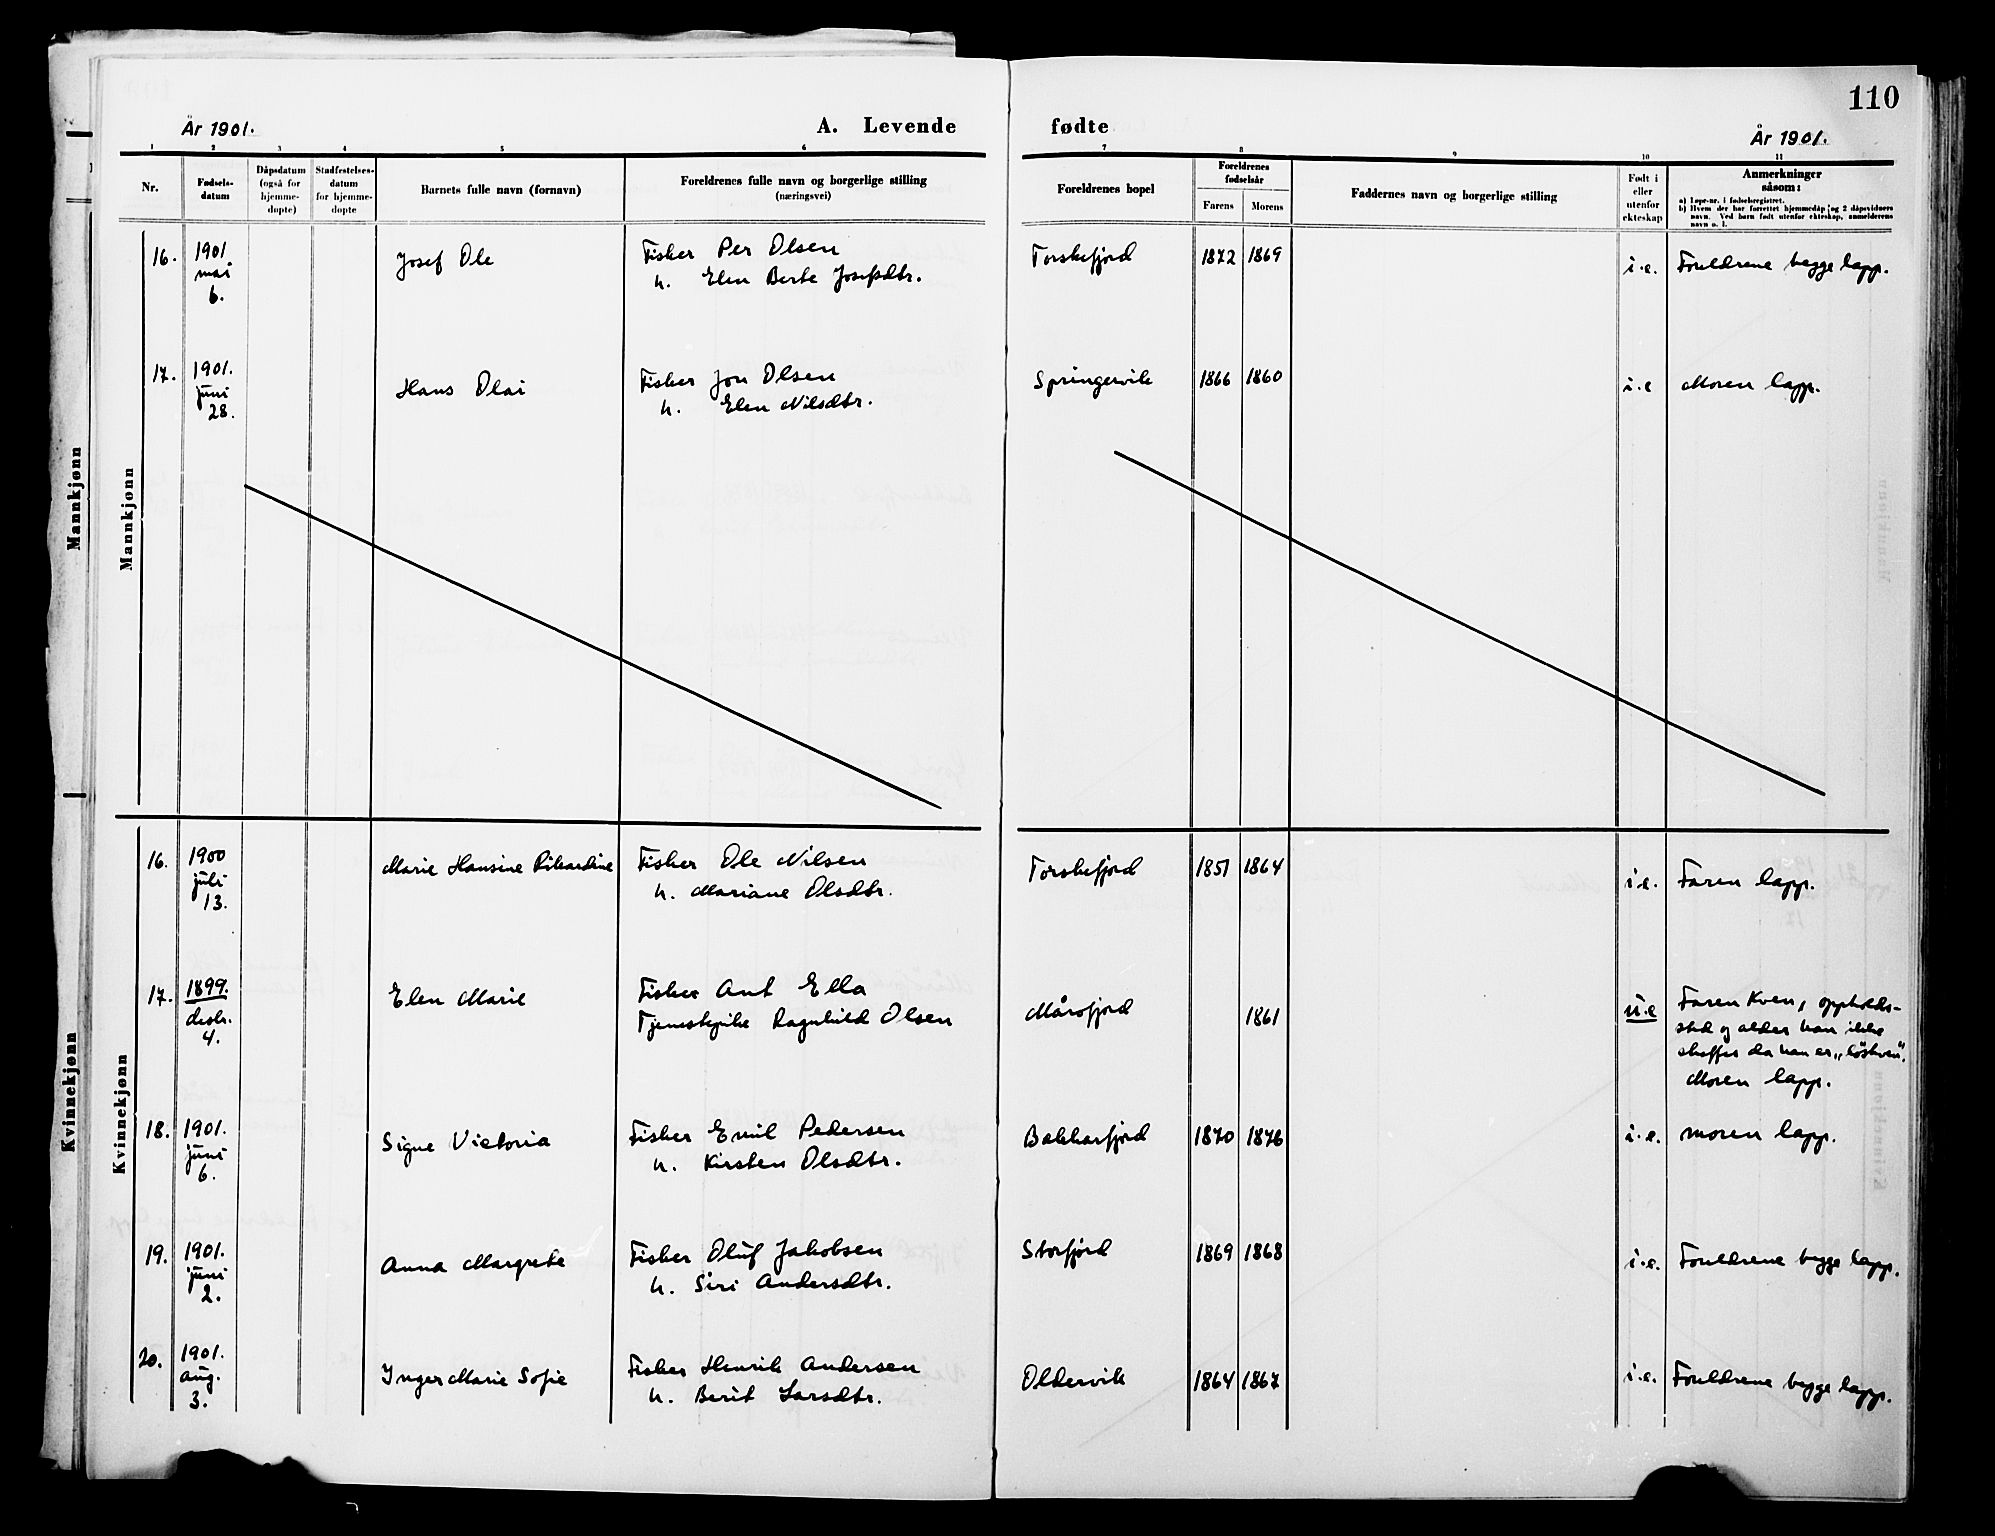 110
År 1901.
A. Levende fødte
År 1901.
1 2 3 4 5 6 7 8 9 10 11
Nr.
Fødsels-
datum
Dåpsdatum
(også for
hjemme-
døpte)
Stadfestelses-
datum
for hjemme-
døpte
Barnets fulle navn (fornavn)
Foreldrenes fulle navn og borgerlige stilling
(næringsvei)
Foreldrenes bopel
Foreldrenes
fødselsår
Farens Morens
Faddernes navn og borgerlige stilling
Født i
eller
utenfor
ekteskap
Anmerkninger
såsom:
a) Løpe-nr. i fødselsregistret.
b) Hvem der har forrettet hjemmedåp og 2 dåpsvidners
navn. Ved barn født utenfor ekteskap, anmelderens
navn o. l.
Mannkjønn
Mannkjønn
16. 1901 Josef Ole Fisher Per Olsen Torskefjord 1872 1869 i.e. Foreldrene begge lapp.
mai h. Elen Berte Josefsdtr.
6.
17. 1901. Hans Olai Fisher Jon Olsen Springervik 1866 1860 i.e Moren lapp.
juni h. Elen Nilsdtr.
28.
Kvinnekjønn
Kvinnekjønn
16. 1900 Marie Hansine Rikardine Fisker Ole Nilsen Torskefjord 1851 1864 i.e. Faren lapp.
juli h. Mariane Olsdtr.
13.
17. 1899. Elen Marie Fisker Ant Ella Mårøfjord 1861 u.e Faren Kven, oppholds-
desbr. Tjenestepike Ragnhild Olsen sted og alder kan ikke
4. skaffes da han er „löskven“.
Moren lapp.
18. 1901. Signe Victoria Fisker Emil Pedersen Bakkarfjord 1870 1876 i.e. moren lapp.
juni h. Kirsten Olsdtr.
6.
19. 1901. Anna Margrete Fisker Oluf Jakobsen Storfjord 1869 1868 i.e. Foreldrene begge lapp.
juni h. Siri Andersdtr.
2.
20. 1901. Inger Marie Sofie Fisker Henrik Andersen Oldervik 1864 1867 i.e. Foreldrene begge lapp.
aug. h. Berit Larsdtr.
3.